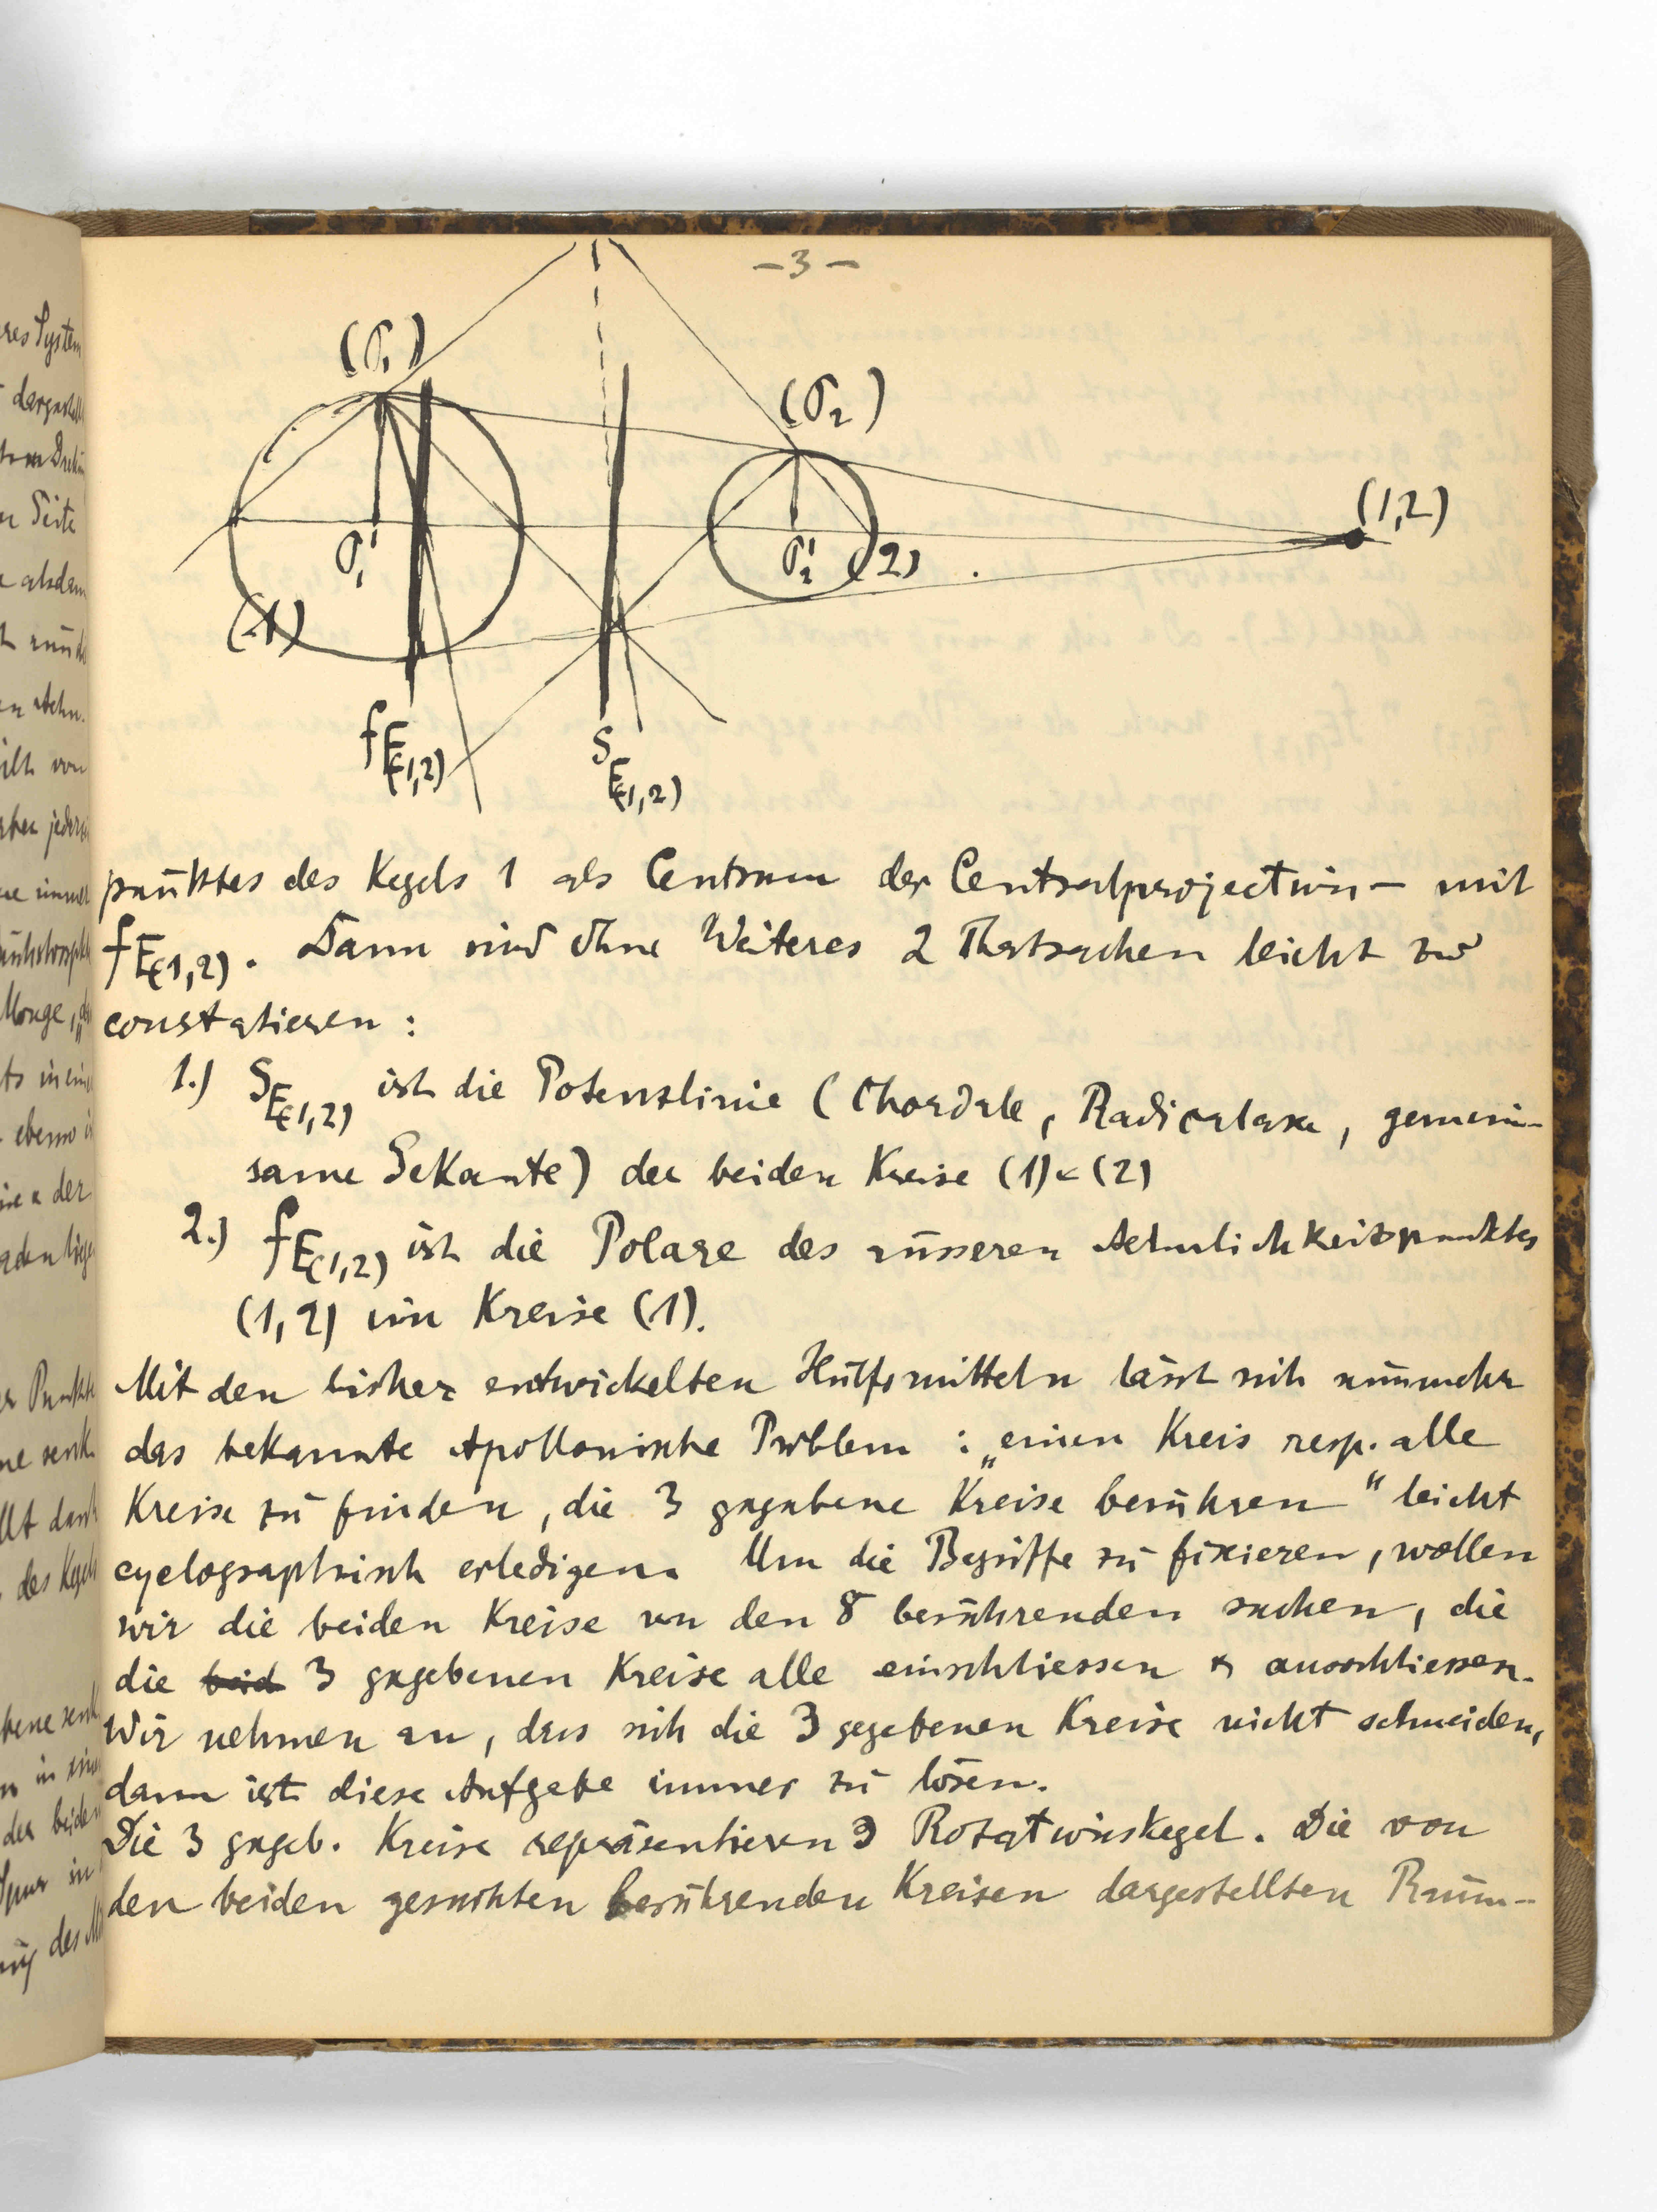 -3-
(σ₁)
(σ₂)
(1,2)
σ₁'
σ₂' (2)
(1)
fE(1,2)
SE(1,2)
punktes des Kegels 1 als Centrum der Centralprojection - mit
fE(1,2). Dann sind ohne Weiteres 2 Thatsachen leicht zu
constatieren :
1.) SE(1,2) ist die Potenzlinie ( Chordale, Radicalaxe, gemein-
same Sekante) der beiden Kreise (1) & (2)
2.) fE(1,2) ist die Polare des äusseren Aehnlichkeitspunktes
(1,2) im Kreise (1).
Mit den bisher entwickelten Hülfsmitteln lässt sich nunmehr
das bekannte Apollonische Problem : „einen Kreis resp. alle
Kreise zu finden, die 3 gegebene Kreise berühren“ leicht
cyclographisch erledigen. Um die Begriffe zu fixieren, wollen
wir die beiden Kreise von den 8 berührenden suchen, die
die beid 3 gegebenen Kreise alle einschliessen & ausschliessen.
Wir nehmen an, dass sich die 3 gegebenen Kreise nicht schneiden,
dann ist diese Aufgabe immer zu lösen.
Die 3 gegeb. Kreise repräsentieren 3 Rotationskegel. Die von
den beiden gesuchten berührenden Kreisen dargestellten Raum-